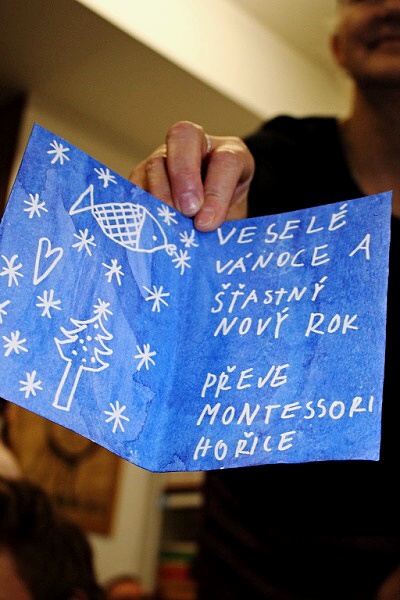 VESELÉ
VÁNOCE A
ŠŤASTNÝ
NOVÝ ROK
PŘEVE
MONTESSORI
HOŘICE